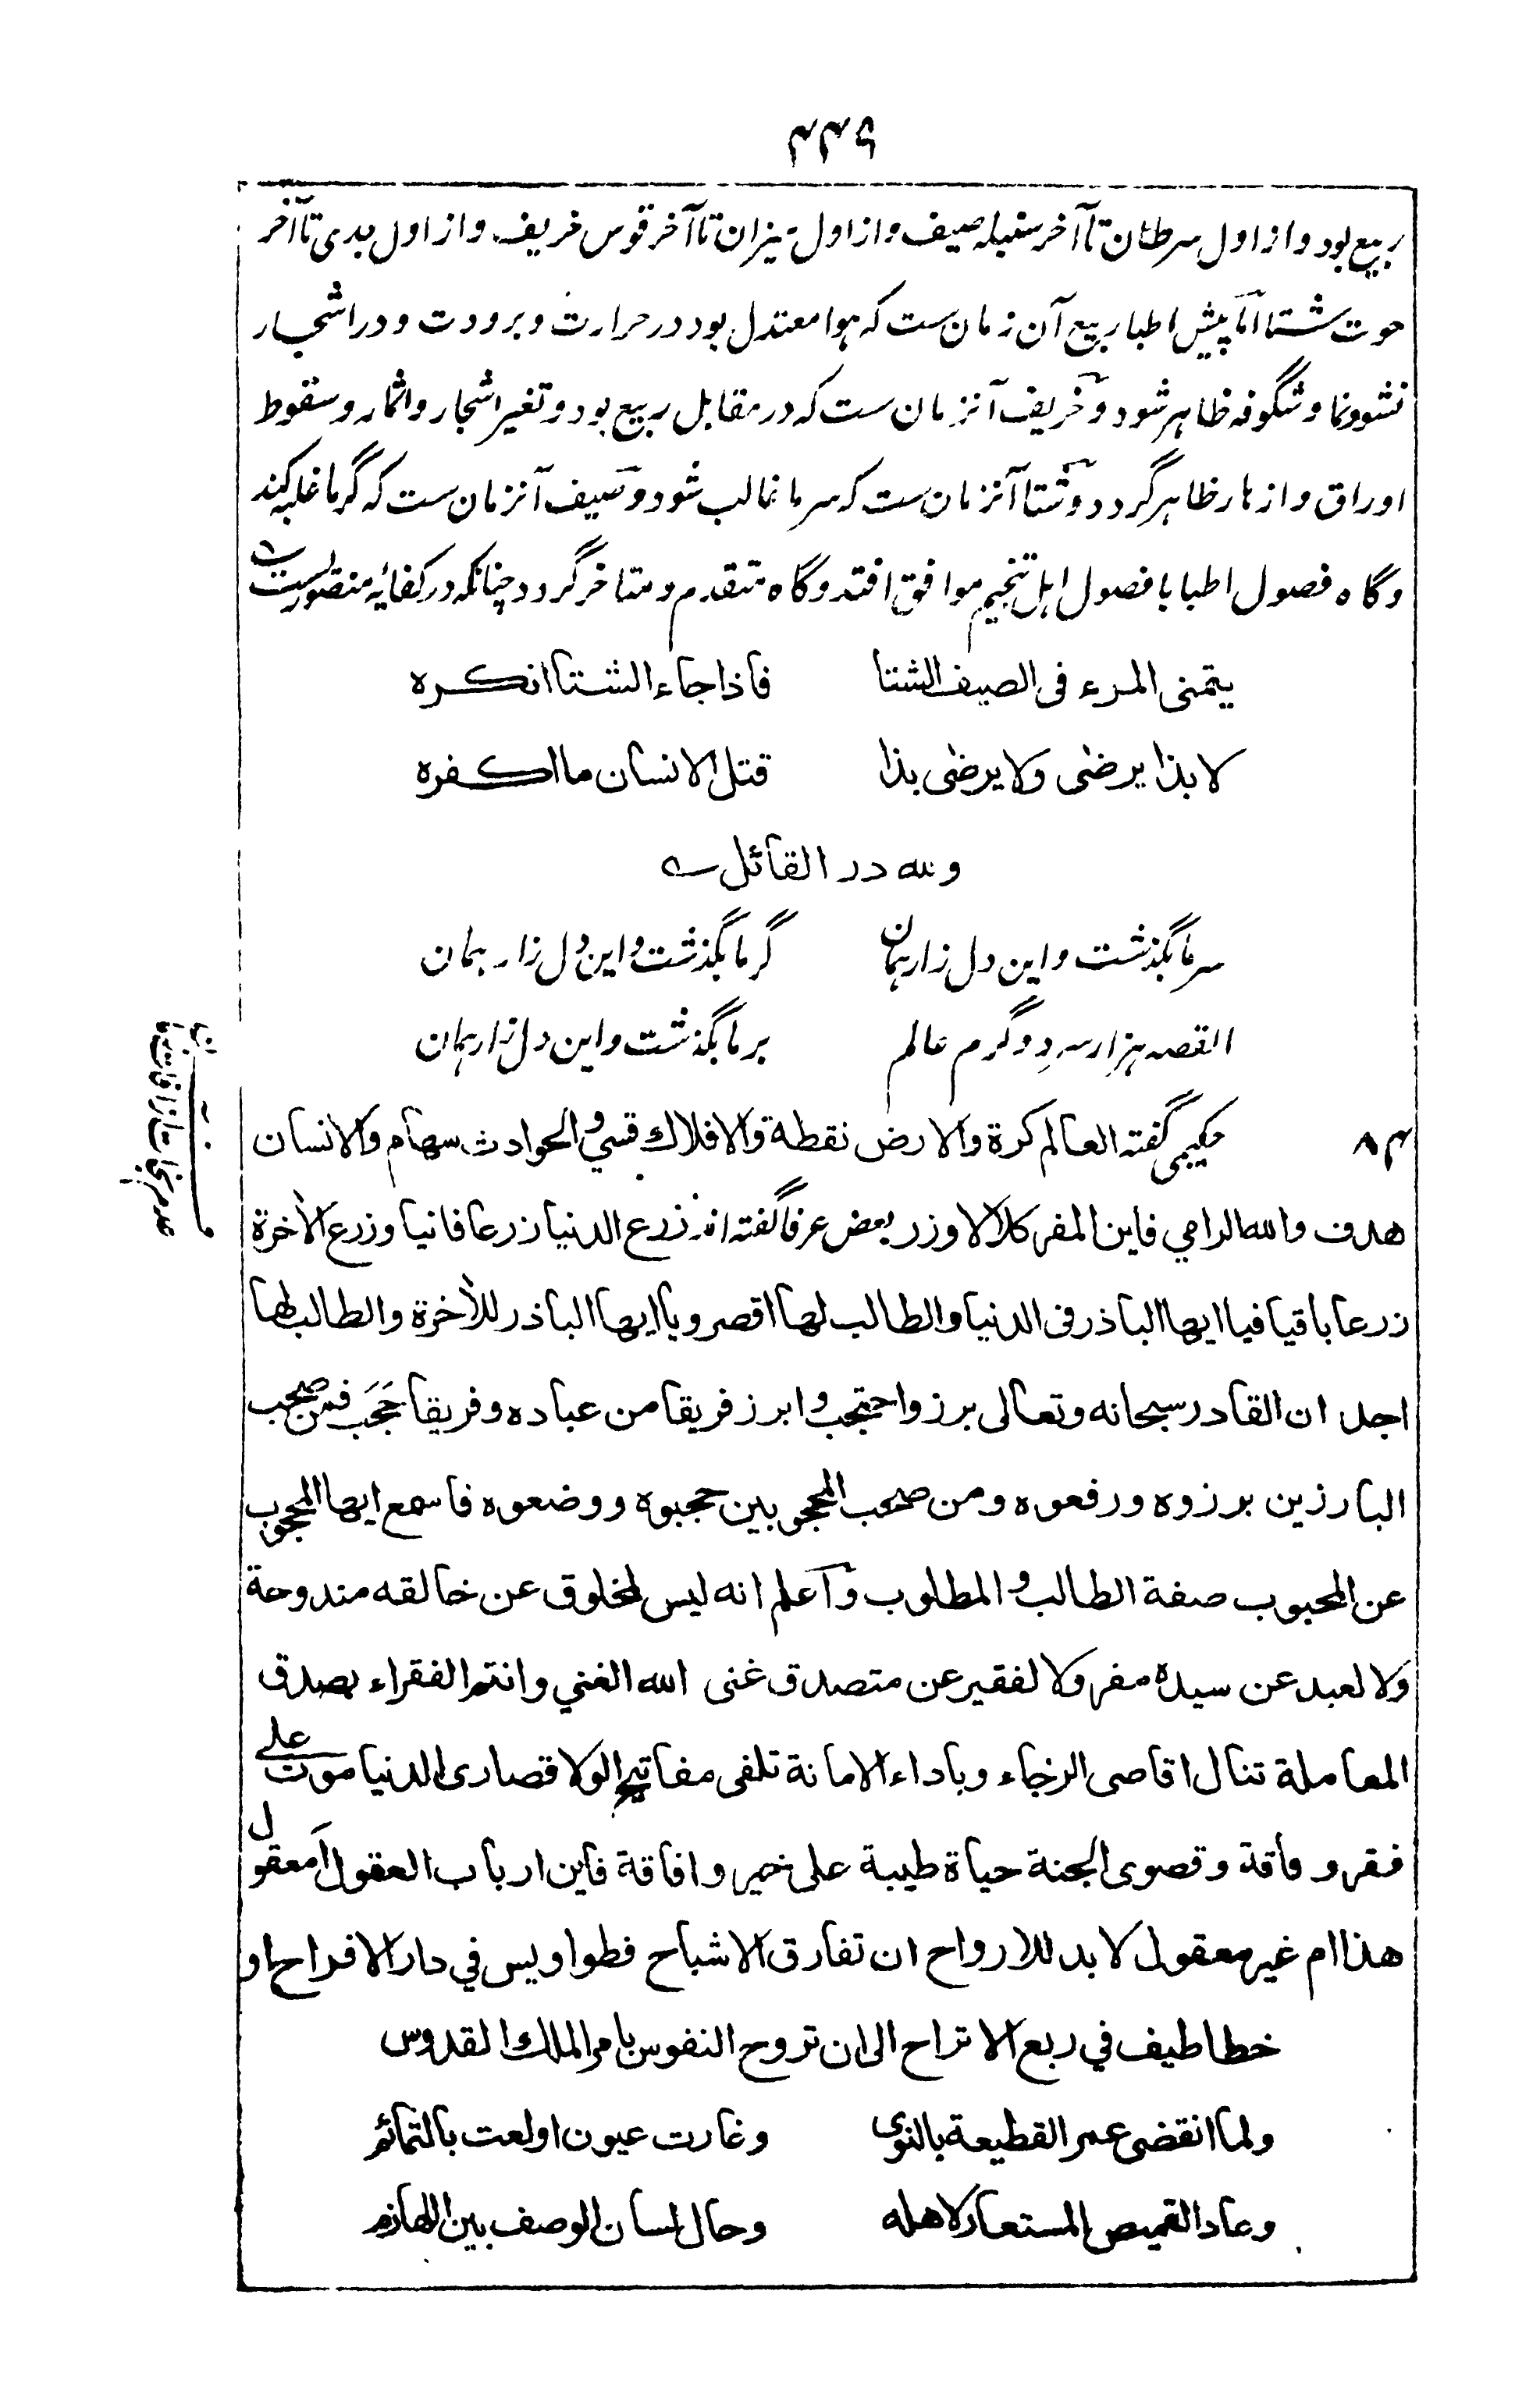 ۴۴۶
ربیع بود و از اول سرطان تا آخر سنبله صیف و از اول میزان تا آخر قوس خریف و از اول جدی تا آخر
حوت شتا اما پیش اطبا ربیع آن زمان ست که هوا معتدل بود در حرارت و برودت و در اشجار
نشوونما و شگوفه ظاهر شود و خریف آنزمان ست که در مقابل ربیع بود و تغیر اشجار و اثمار و سقوط
اوراق و ازهار ظاهر گردد و شتا آنزمان ست که سرما غالب شود و صیف آنزمان ست که گرما غلبه کند
و گاه فصول اطبا با فصول اهل تنجیم موافق افتد و گاه متقدم و متاخر گردد چنانکه در کفایه منصوریست
یتمنی المرء فی الصیف الشتا فاذا جاء الشتا انکره
لا بذا یرضی ولا یرضی بذا قتل الانسان ما اکفره
ولله در القائل
سرما بگذشت و این دل زار همان گرما بگذشت و این دل زار همان
القصه هزار سرد و گرم عالم بر ما بگذشت و این دل زار همان
۸۴ حکیمی گفته العالم کرة والارض نقطة والافلاك قسی والحوادث سهام والانسان
هدف والله الرامی فاین المفر کلا لا وزر بعض عرفا گفته اند زرع الدنیا زرعا فانیا وزرع الاٰخرة
زرعا باقیا فیا ایها الباذر فی الدنیا والطالب لها اقصر ویا ایها الباذر للاٰخرة والطالب لها
اجل ان القادر سبحانه وتعالی برز واحتجب وابرز فریقا من عباده وفریقا حَجَب فمن صحب
البارزین برزوه ورفعوه ومن صحب المحجوبین حجبوه ووضعوه فاسمع ایها المحجوب
عن المحبوب صفة الطالب والمطلوب واعلم انه لیس لمخلوق عن خالقه مندوحة
ولا لعبد عن سیده مفر ولا لفقیر عن متصدق غنی الله الغنی وانتم الفقراء بصدق
المعاملة تنال اقاصی الرجاء وباداء الامانة تلفی مفاتیح الولا قصاری الدنیا موت علی
فقر وفاقة وقصوی الجنة حیاة طیبة علی خیر وافاقة فاین ارباب العقول امعقول
هذا ام غیر معقول لا بد للارواح ان تفارق الاشباح فطواویس فی دار الافراح او
خطاطیف فی ربع الاتراح الی ان تروح النفوس بامر الملك القدوس
ولما انقضی عمر القطیعة بالنوی وغارت عیون اولعت بالتمائم
وعاد القمیص المستعار لاهله وحال لسان الوصف بین اللهازم